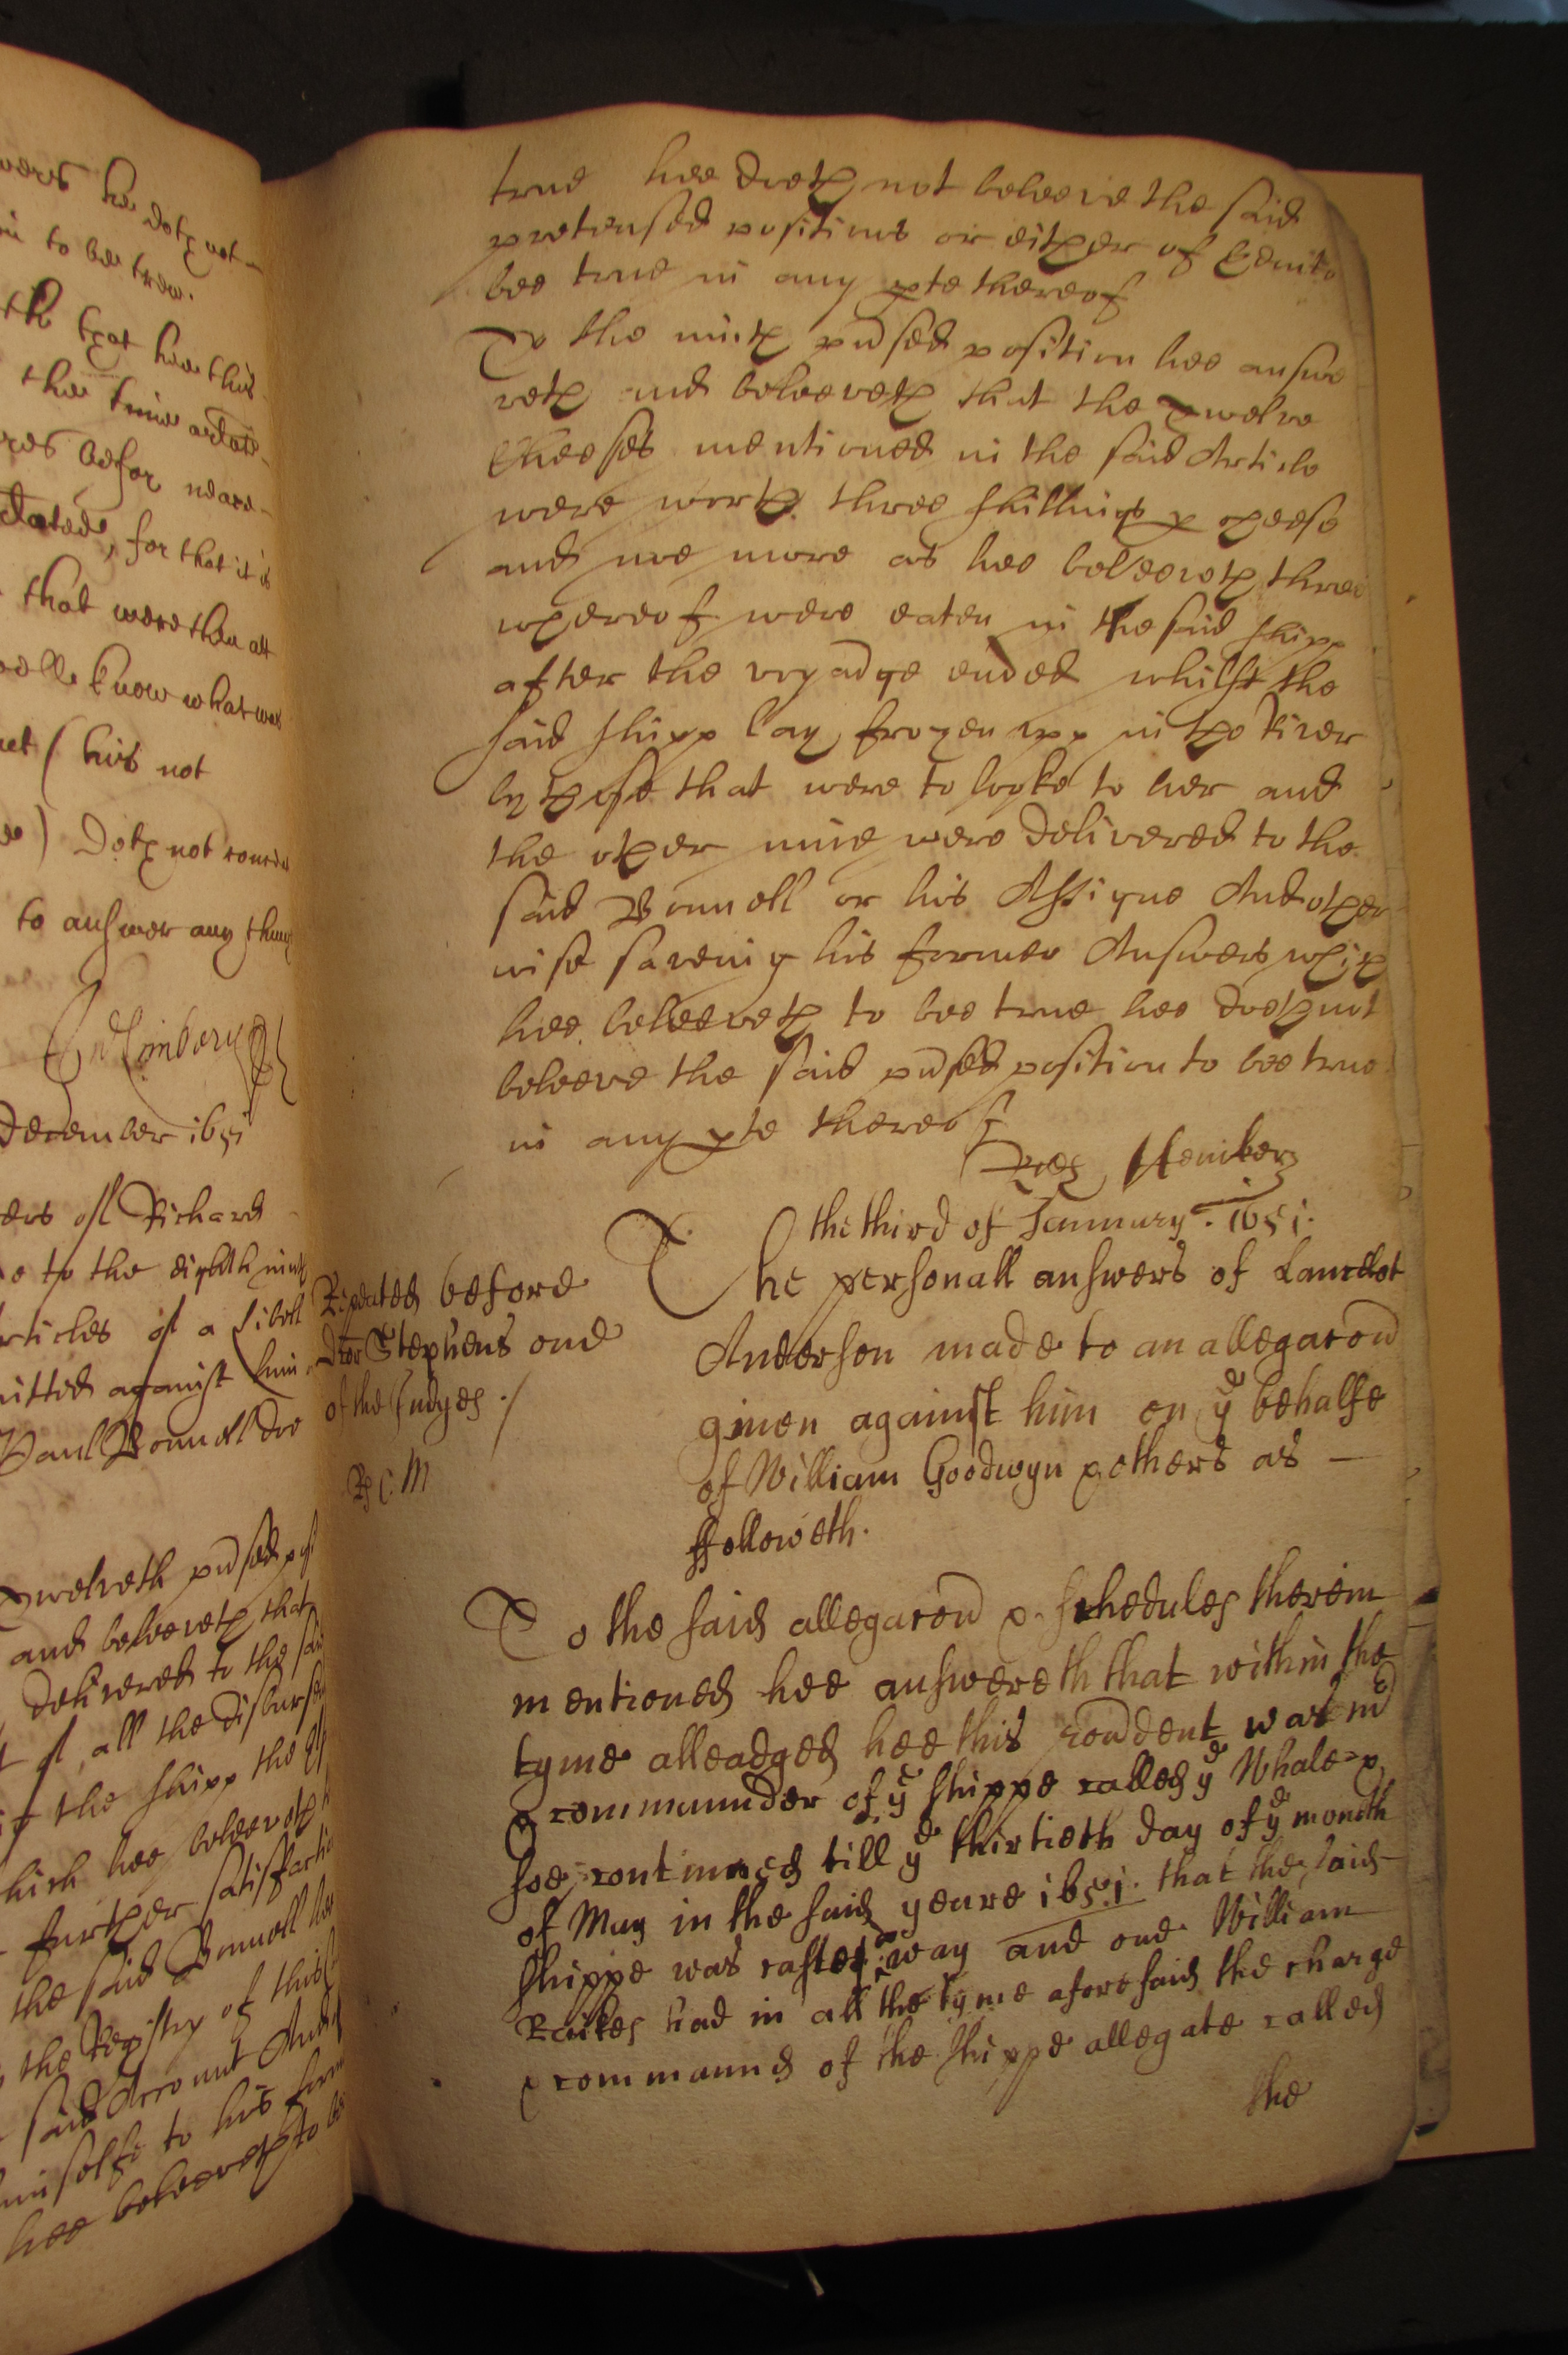 vers he doth not
to be trew.
that hee this
the time arlate
res befor neare
dated, for that it is
that were then att
well know what was
his not
Doth not conc
to answer any thing
december 1651
ers of Richard
to the eighth nint
rticles of a libell
itted against him
Paul Bonnell doe
twelveth prdsed posi
and beleeveth that
delivered to the said
of all the disburse
the shipp the
hich hee beleeveth
further satisfacti
the said Bonnell hee
the Registry of this
said Account And
imselfe to his form
hee beleeveth to be
true hee doeth not beleeve the said
pretensed positions or either of them to
bee true in any pte thereof
To the ninth prdsed position hee answe
reth and beleeveth that the twelve
Cheeses mentioned in the said Article
were worth three shillings p cheese
and noe more as hee beleeveth three
whereof were eaten in the said shipp
after the voyadge ended whilst the
said shipp lay frozen upp in the River
by those that were to looke to her and
the other nine were delivered to the
said Bonnell or his Assigne And other
wise saveing his former Answers which
hee beleeveth to bee true hee doeth not
beleeve the said prdsed position to bee true
in any pte thereof
Henikerz
the third of January. 1651.
Repeated before
Dtor Stephens one
of the Judges ./
The personall answers of Lancelot
Anderson made to an allegacon
given against him on ye behalfe
of William Goodwyn & others as —
ffolloweth.
To the said allegacon & schedules therein
mentioned hee answereth that within the
tyme alleadged hee this rondent was mr
& commaunder of ye shippe called ye Whale &
soe continued till ye thirtieth day of ye moneth
of May in the said yeare 1651. that the said
shippe was casted away and one William
Raikes had in all the tyme aforesaid the charge
& commaund of the shippe allegate called
the